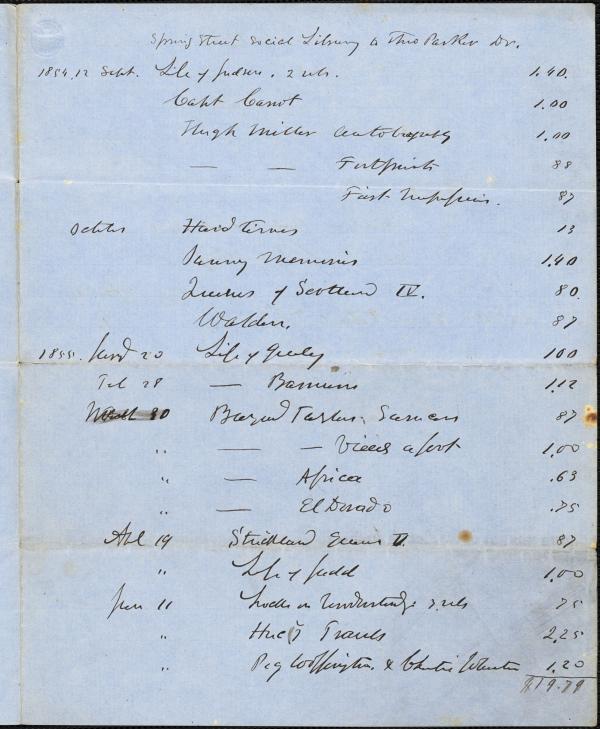 Spring Street Social Library to Theo Parker Dr.
1854.12 Sept. Life of Judson. 2 vols. 1.40.
Capt Canot 1.00
Hugh Miller Autobiography 1.00
— — Footprints 88
First Impressions. 87
October Hard Times 13
Sunny Memories 1,40
Queens of Scotland IV. 80
Walden. 87
1855. 20 Life of Greeley 100
Feb 28 — Barnum 1.12
30 Bayard Taylor, 87
" — — Views afoot 1.00
" — Africa .63
" — El Dorado .75
Apl 19 Strickland Queens V. 87
" Life of Judd 1.00
Jun 11 Locke on Understanding 2 vols 75
" Huc's Travels 2,25
" Peg Woffington & Christie Johnstone 1.20
$19.79